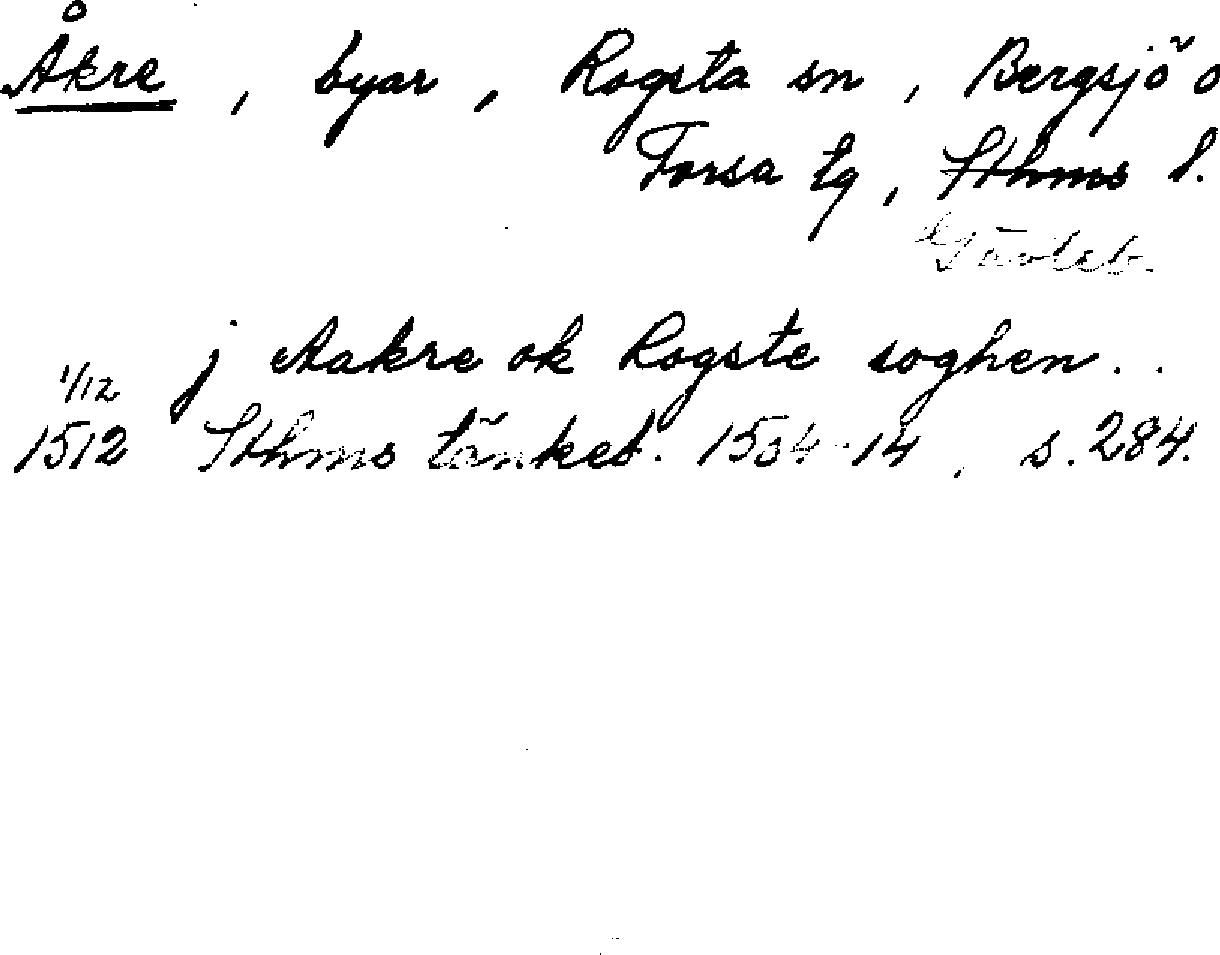 Åkre, byar, Rogsta sn, Bergsjö o
Forsa tg, Sthms l.
Gävleb.
j Aakre ok Rogste soghen..
1/12
1512 Sthms tänkeb. 1504-14, s. 284.